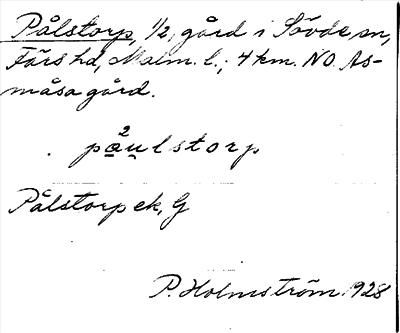 Pålstorp, 1/2, gård i Sövde sn,
Färs hd, Malm. l.; 4 km. NO. As-
måsa gård.
2
paulstorp
Pålstorp ek, G
P. Holmström 1928